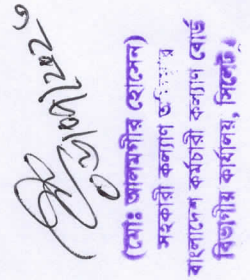 (মোঃ আলমগীর হোসেন)
সহকারী কল্যাণ
বাংলাদেশ কর্মচারী কল্যাণ বোর্ড
বিভাগীয় কার্যালয়, সিলেট।